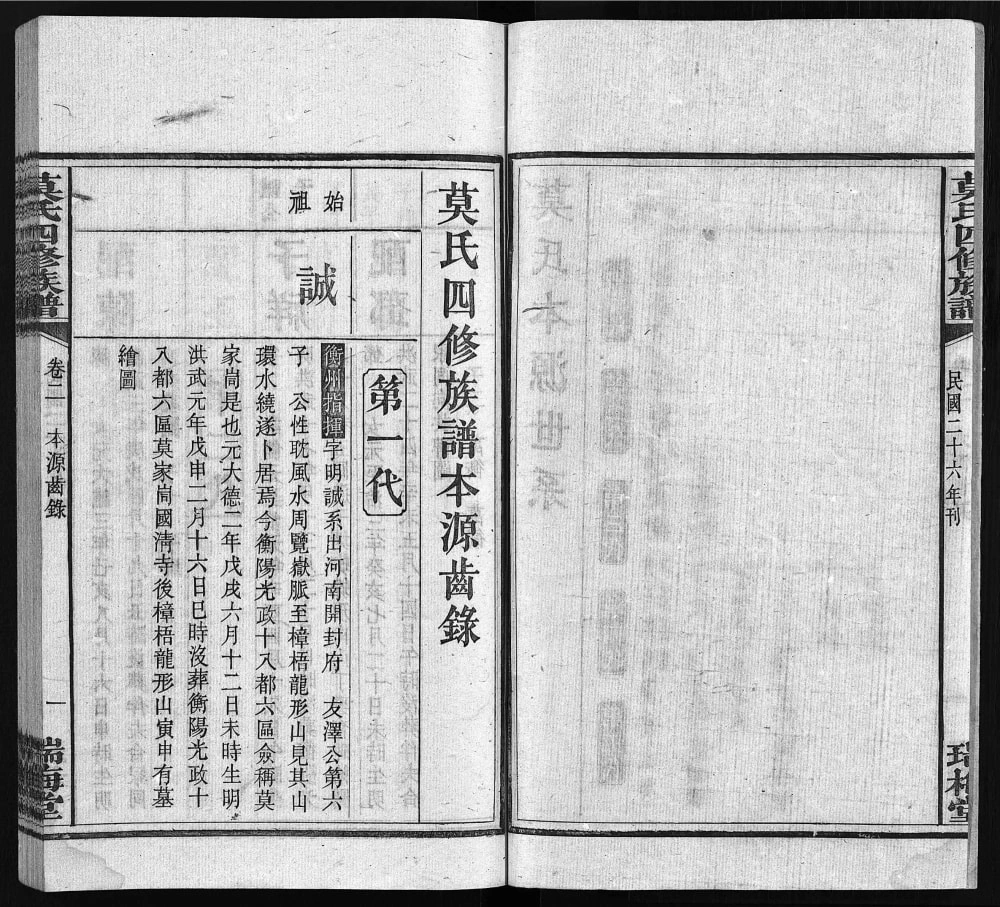 莫氏四修族譜
民國二十六年刊
莫氏四修族譜本源齒錄
第一代
始祖
誠
衡州指揮字明誠系出河南開封府 友澤公第六
子 公性耽風水周覽嶽脈至樟梧龍形山見其山
環水繞遂卜居焉今衡陽光政十八都六區僉稱莫
家崗是也元大德二年戊戌六月十二日未時生明
洪武元年戊申二月十六日巳時沒葬衡陽光政十
八都六區莫家崗國清寺後樟梧龍形山寅申有墓
繪圖
莫氏四修族譜
卷二 本源齒錄
一